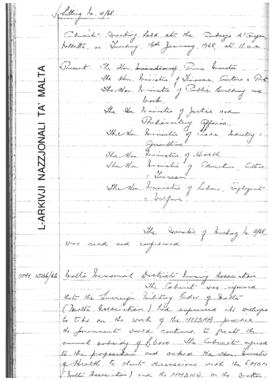 Sitting No. 4/68.
Cabinet Meeting held at the Auberge d'Aragon,
Valletta, on Tuesday 16th January, 1968, at 11 a.m.
Present: The Hon. Prime Minister
The Hon. Minister of Finance, Customs & Port
The Hon. Minister of Public Building and
Works.
The Hon. Minister of Justice and
Parliamentary Affairs.
The Hon. Minister of Trade, Industry &
Agriculture
The Hon. Minister of Health
The Hon. Minister of Education, Culture
& Tourism
The Hon. Minister of Labour, Employment
& Welfare
The Minutes of Meeting No. 3/68
were read and confirmed.
Malta Memorial District Nursing Association
The Cabinet was informed
that the Sovereign Military Order of Malta
(Malta Association) had expressed its willingness
to take on the work of the MMDNA provided
the Government would continue to grant the
annual subsidy of
The Cabinet agreed
to the proposal and asked the Hon. Minister
of Health to start discussions with the
(Malta Association) and the MMDNA, on the
L-ARKIVJI NAZZJONALI TA' MALTA